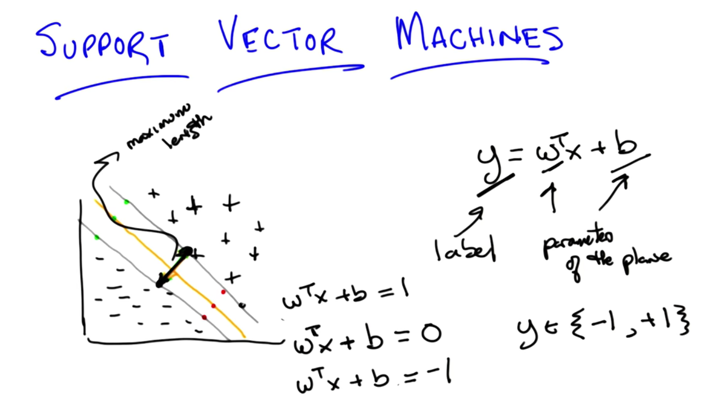 SUPPORT VECTOR MACHINES
maximum
length
y = wᵀx + b
label
parameters
of the plane
wᵀx + b = 1
wᵀx + b = 0
wᵀx + b = -1
y ∈ {-1, +1}